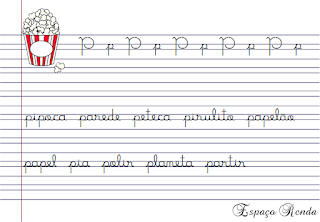 P p P p P p P p P p
pipoca parede peteca pirulito papelão
papel pia polir planeta partir
Espaço Renda